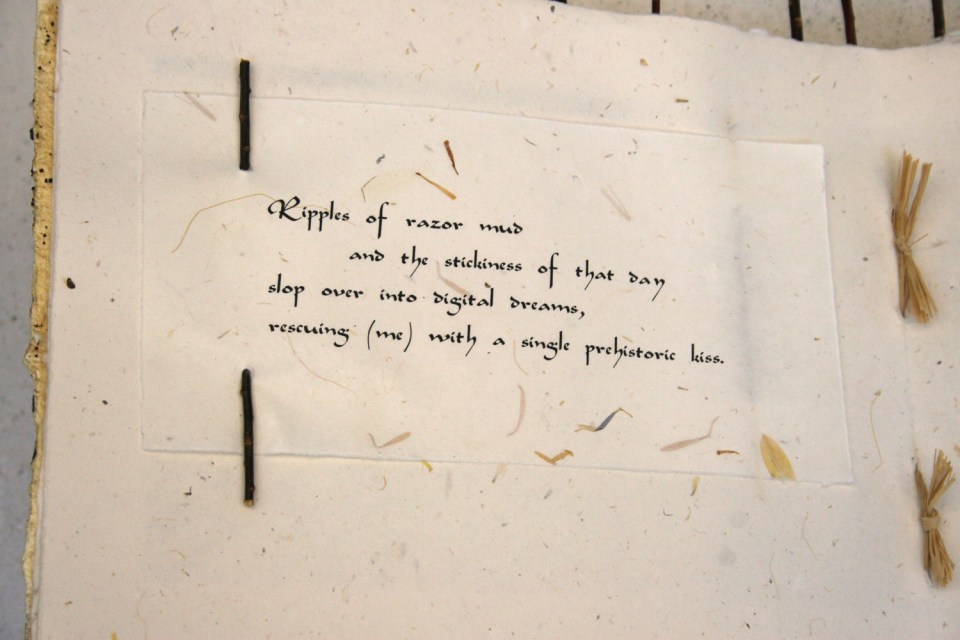 Ripples of razor mud
and the stickiness of that day
slop over into digital dreams,
rescuing (me) with a single prehistoric kiss.